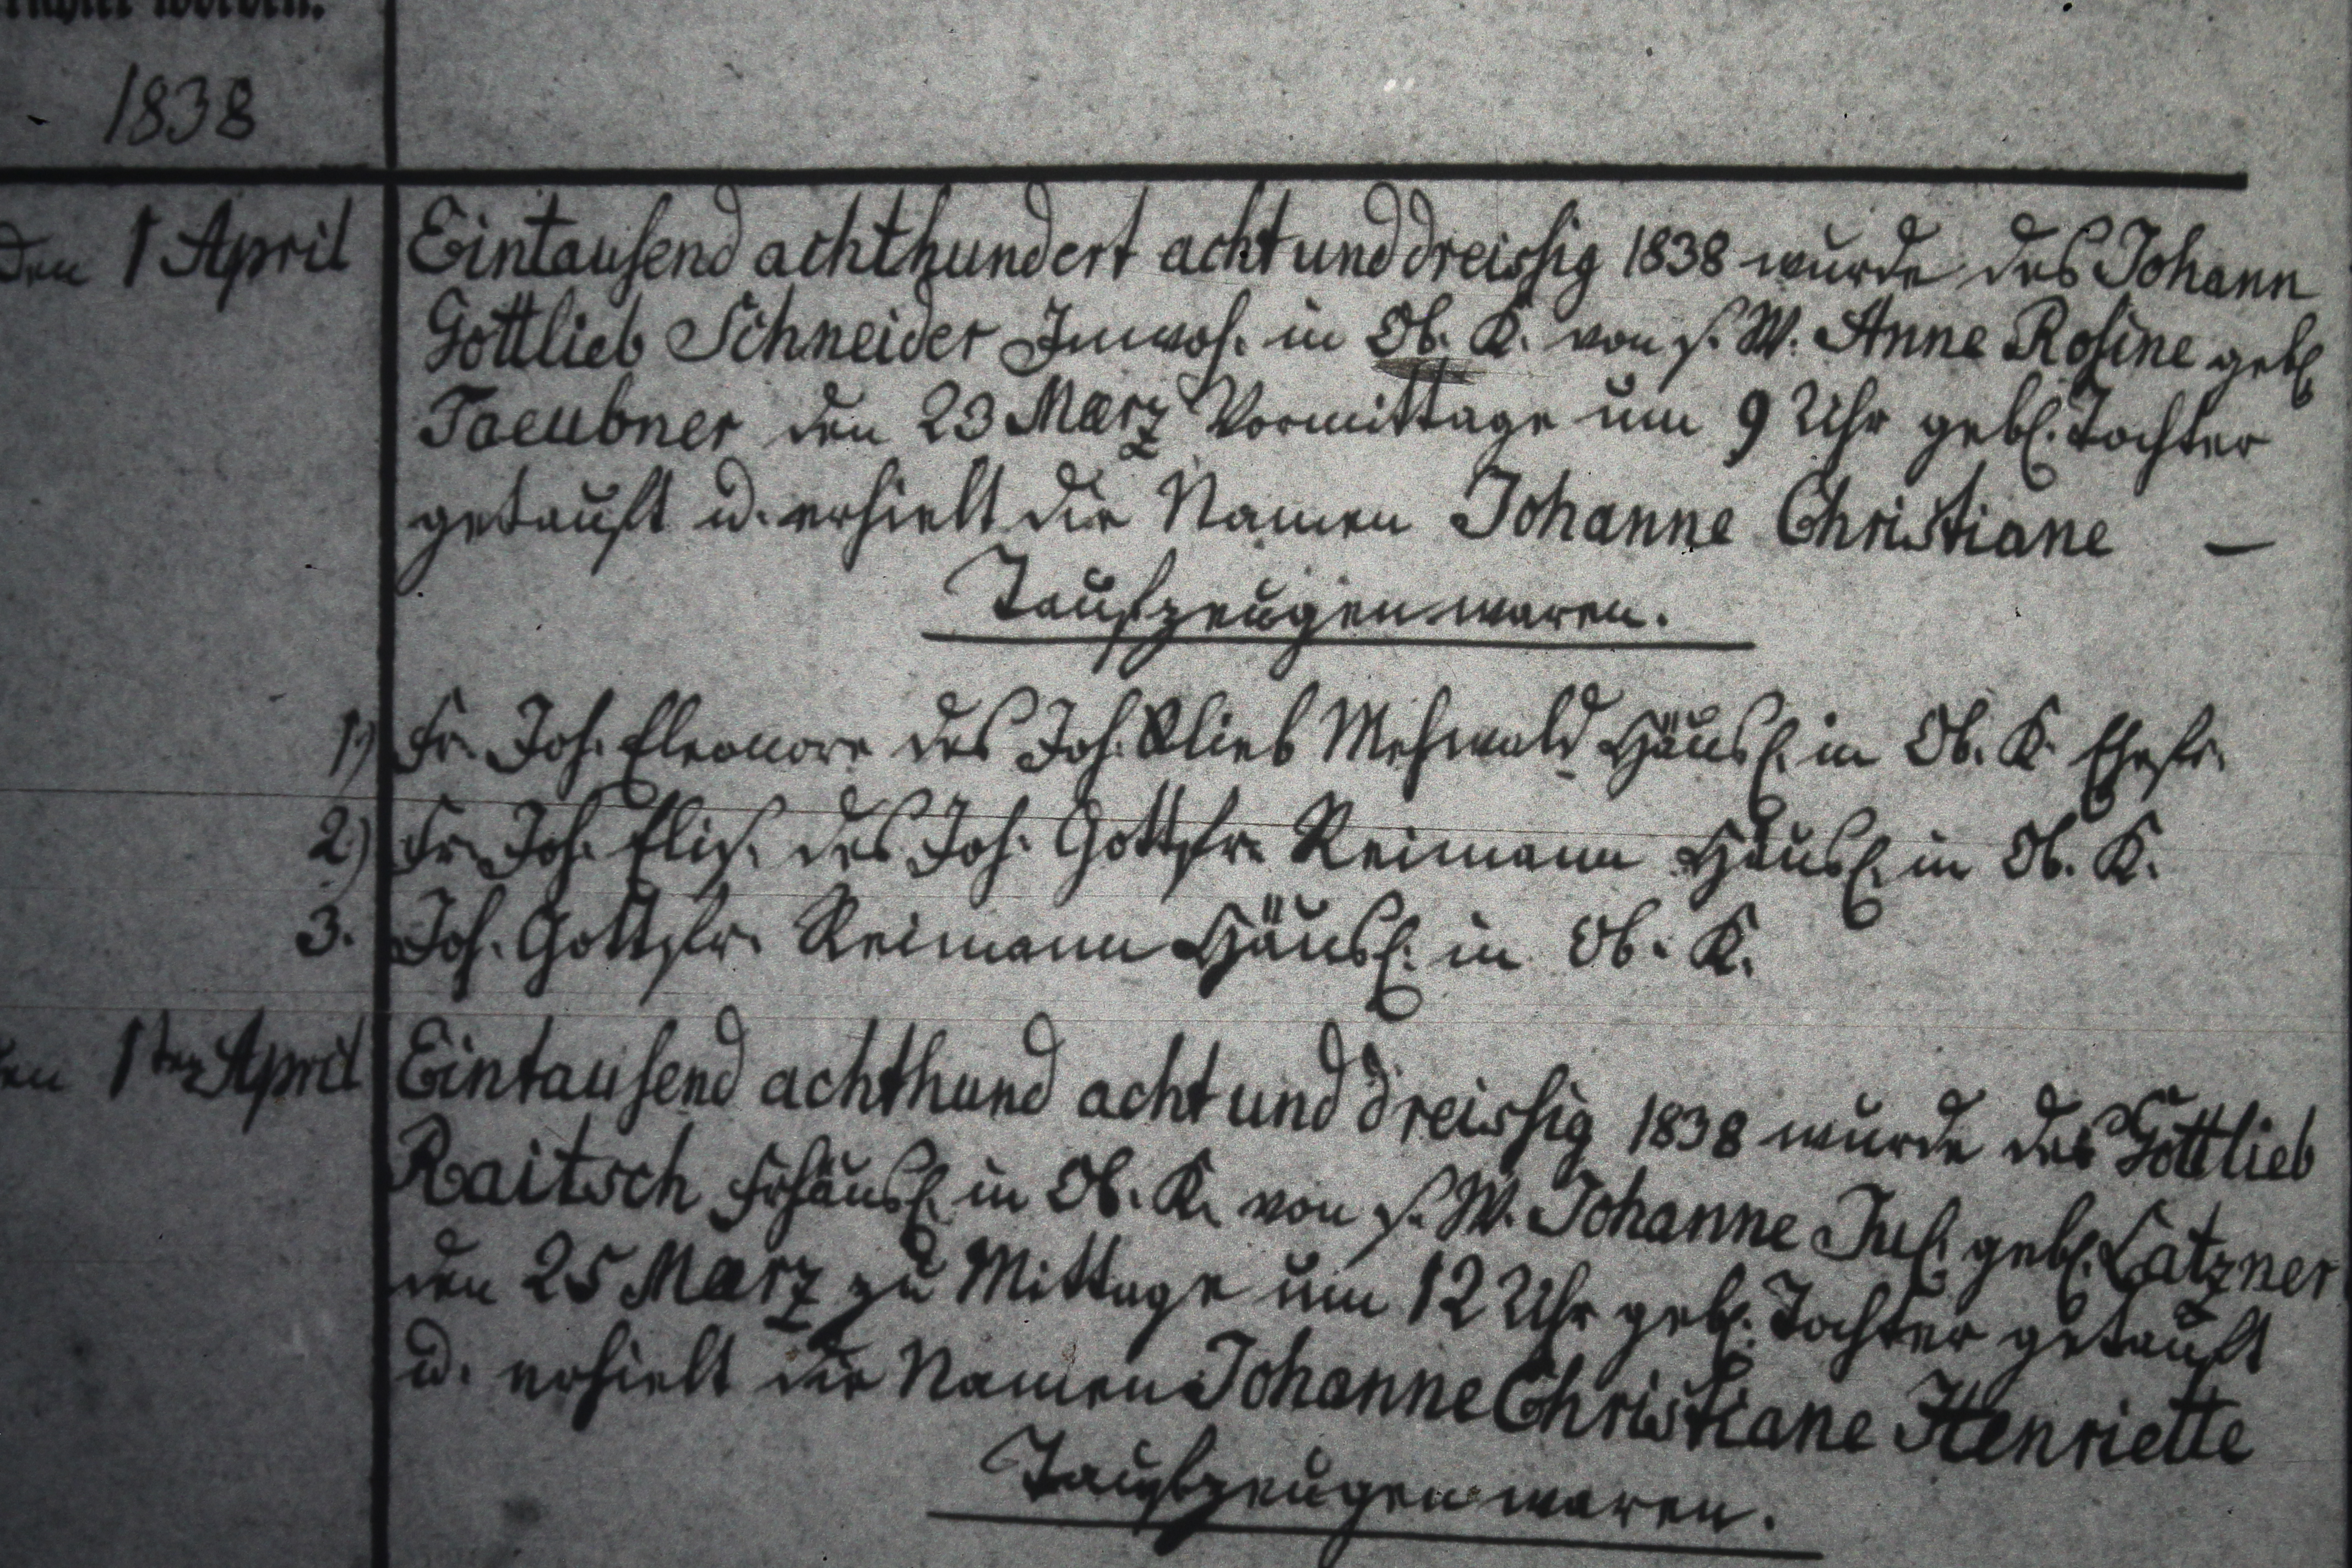 worden.
1838
den 1 April Eintausend achthundert acht und dreissig 1838 wurde des Johann
Gottlieb Schneider Inwoh. in Ob. K. von s. W. Anne Rosine gebl
Taeubner den 23 Maerz Vormittage um 9 Uhr gebl. Tochter
getauft u. erhielt die Namen Johanne Christiane —
Taufzeugen waren.
1) Fr. Joh. Eleonore des Joh. Glieb Mehwald Häusl. in Ob. K. Ehefr.
2) Fr. Joh. Elis. des Joh. Gottfr. Reimann Häusl. in Ob. K.
3. Joh. Gottfr. Reimann Häusl. in Ob. K.
en 1ten April Eintausend achthund acht und dreissig 1838 wurde des Gottlieb
Raitsch Frhäusl. in Ob. K. von s. W. Johanne Jul. gebl. Latzner
den 25 Maerz zu Mittage um 12 Uhr gebl. Tochter getauft
u. erhielt die Namen Johanne Christiane Henriette
Taufzeugen waren.